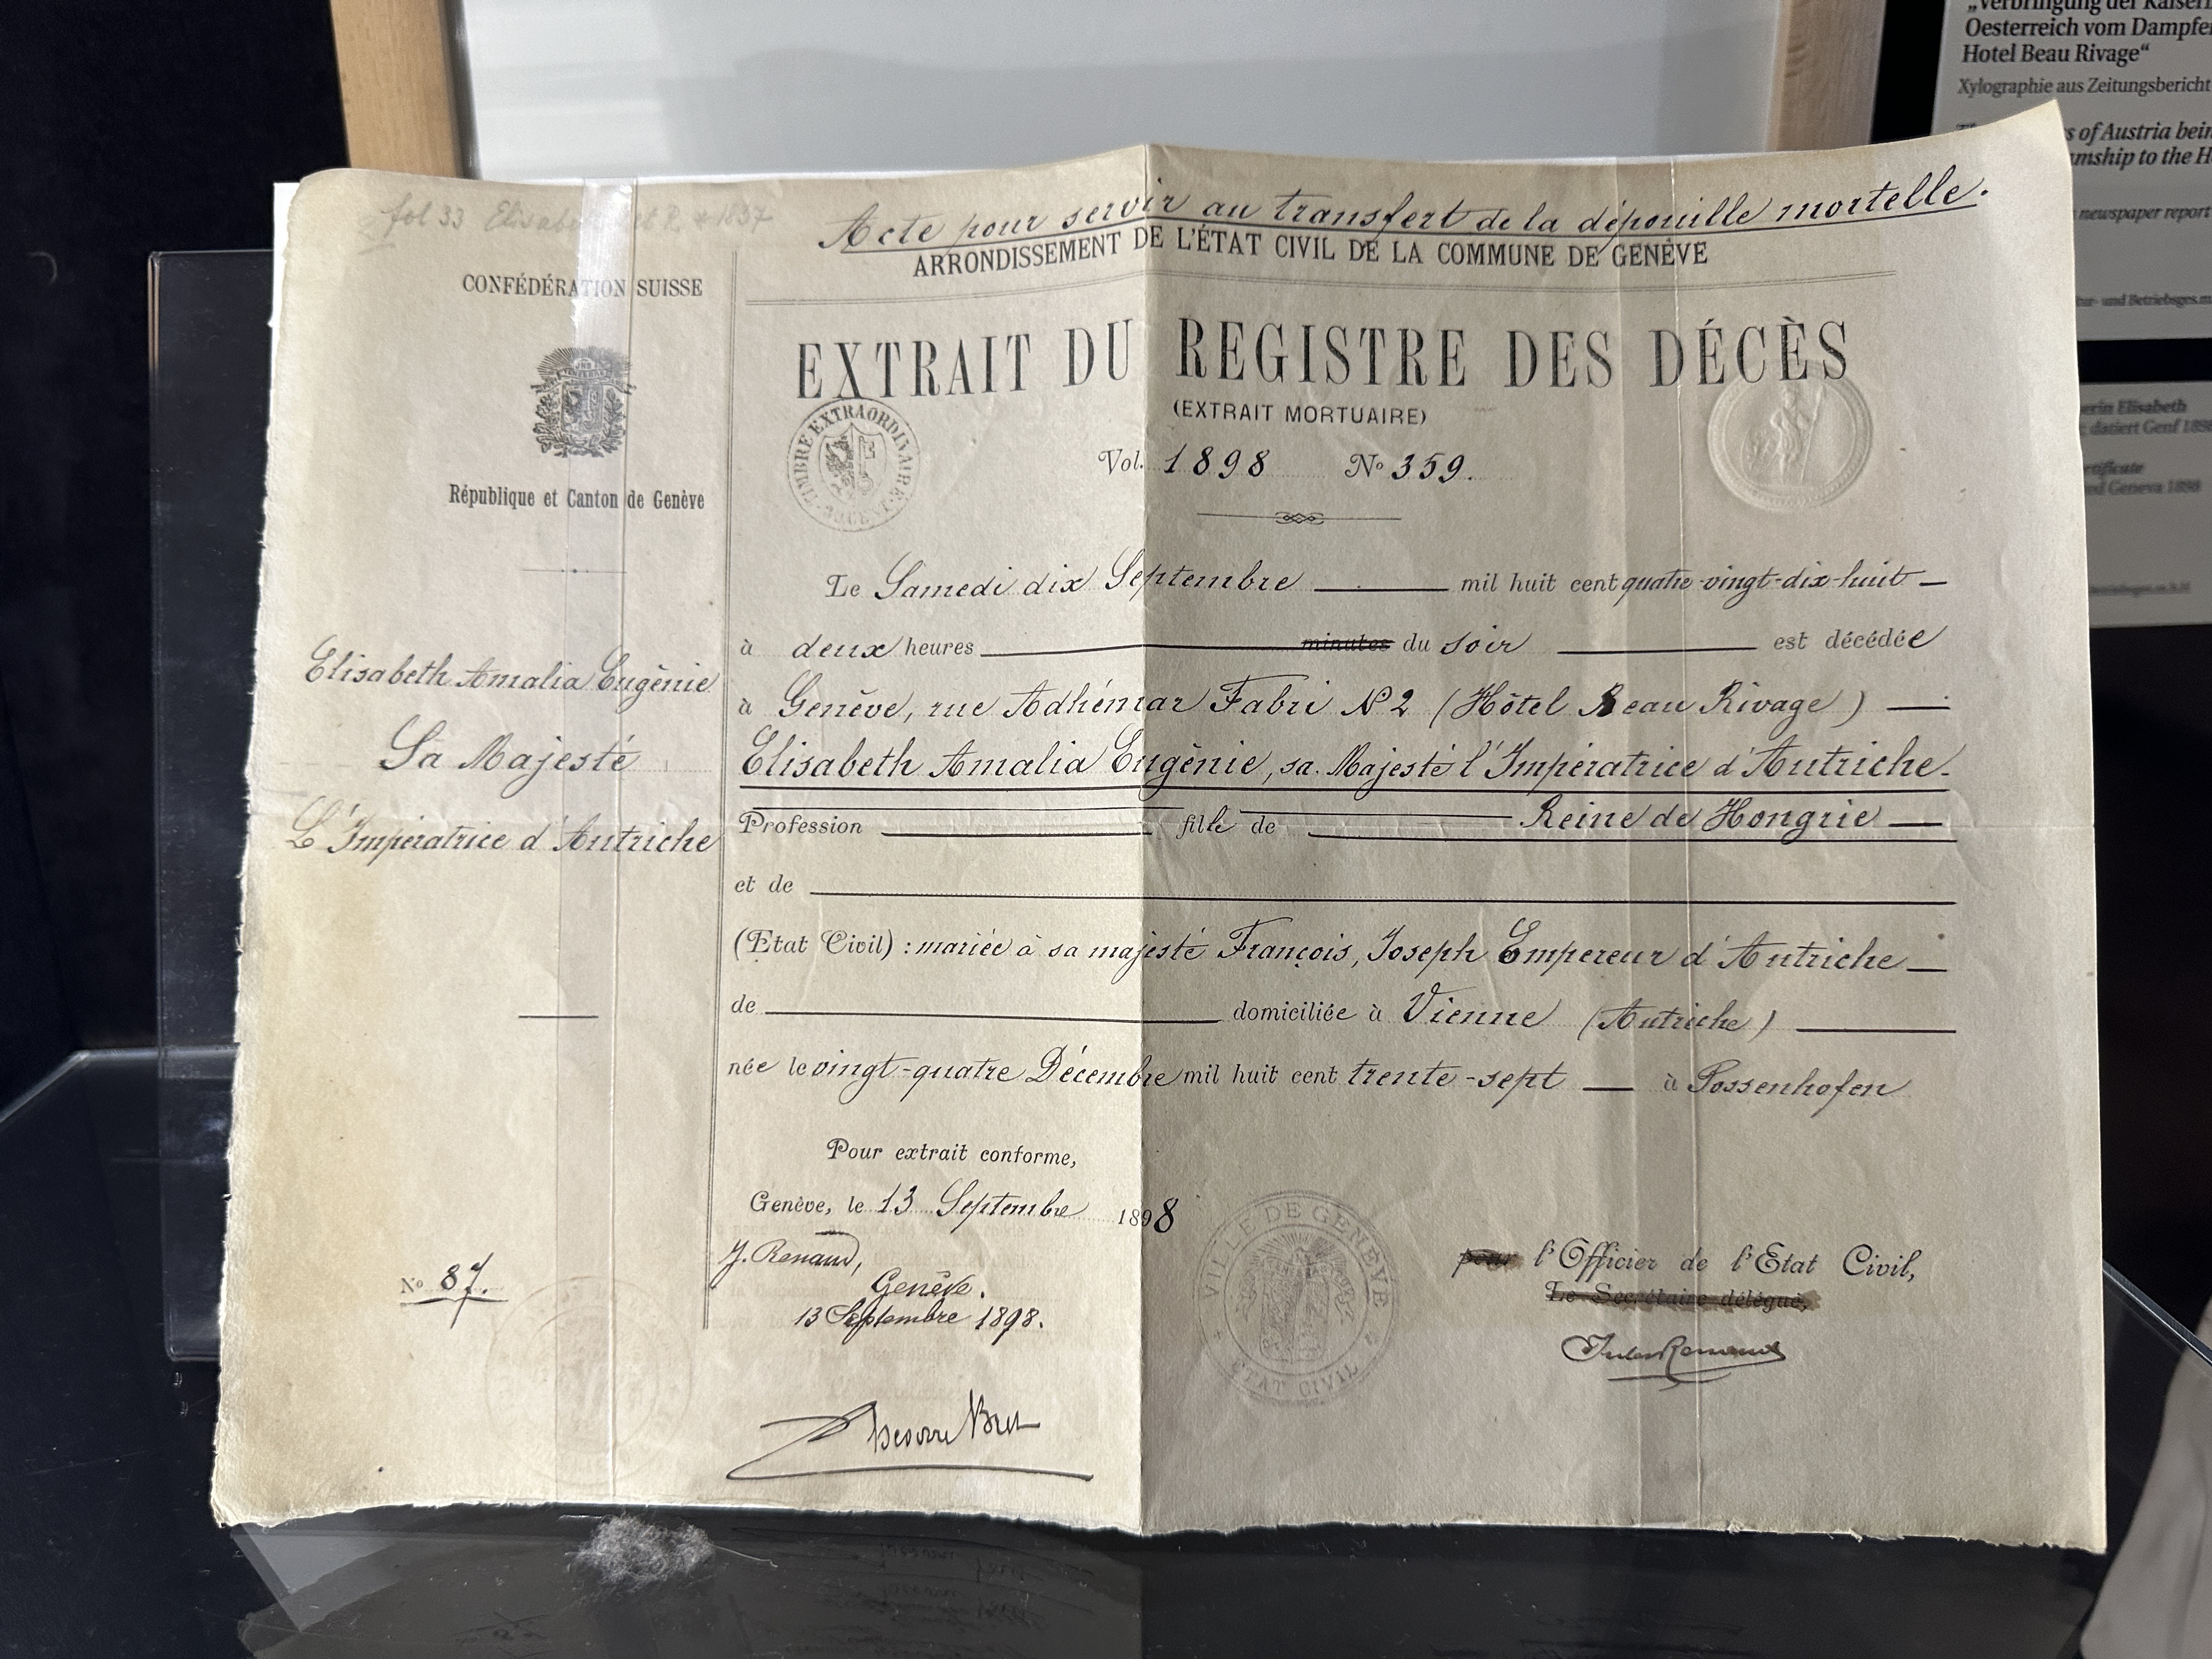 „Verbringung der Kaiserin
Oesterreich vom Dampfer
Hotel Beau Rivage“
Xylographie aus Zeitungsbericht
of Austria
to the
newspaper report
und Betriebsges.m
Elisabeth
datiert Genf 1898
Geneva 1898
fol 33
Acte pour servir au transfert de la dépouille mortelle.
ARRONDISSEMENT DE L'ÉTAT CIVIL DE LA COMMUNE DE GENÈVE
CONFÉDÉRATION SUISSE
République et Canton de Genève
EXTRAIT DU REGISTRE DES DÉCÈS
(EXTRAIT MORTUAIRE)
TIMBRE EXTRAORDINAIRE
Vol. 1898 No 359.
Le Samedi dix Septembre mil huit cent quatre-vingt-dix-huit
à deux heures minutes du soir est décédée
à Genève, rue Adhémar Fabri No 2 (Hôtel Beau Rivage)
Elisabeth Amalia Eugénie, sa Majesté l'Impératrice d'Autriche.
Profession fille de Reine de Hongrie
et de
(Etat Civil) : mariée à sa majesté François, Joseph Empereur d'Autriche
de domiciliée à Vienne (Autriche)
née le vingt-quatre Décembre mil huit cent trente-sept à Possenhofen
Elisabeth Amalia Eugénie
Sa Majesté
L'Impératrice d'Autriche
No 87.
Pour extrait conforme,
Genève, le 13 Septembre 1898
J. Renaud,
Genève.
13 Septembre 1898.
VILLE DE GENÈVE
ETAT CIVIL
pour l'Officier de l'Etat Civil,
Le Secrétaire délégué,
Jules Renaud